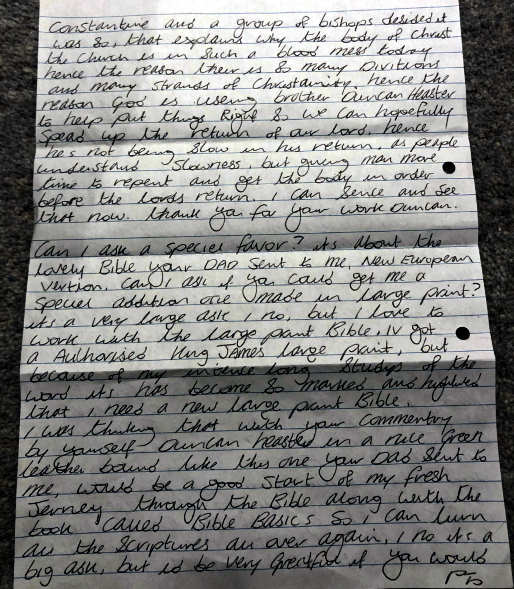 Constantine and a group of bishops desided it
was so, that explains why the body of Christ
the Church is in such a blood mess today
hence the reason their is so many Divitions
and many Strands of Christainity, hence the
reason God is useing brother Duncan Heaster
to help put things Right so we can hopefully
Spead up the return of our lord, hence
he's not being slow in his return, as people
understand Slowness, but giving man more
time to repent and get the body in order
before the Lords return, I can sence and see
that now. thank you for your work Duncan.
Can I ask a speciel favor? its about the
lovely Bible your DAD Sent to me, New European
Vertion, Can I ask if you could get me a
Speciel addition one made in large print?
its a very large ask I no, but I love to
work with the large print Bible, IV got
a Authorised King James large print, but
because of my intence long Studys of the
word its has become so marked and highlited
that I need a new large print Bible.
I was thinking that with your Commentry
by yourself Duncan heaster in a nice Green
leather bound like this one your Dad Sent to
me, would be a good Start of my fresh
Jerney through the Bible along with the
book Called Bible Basics So I can lurn
all the Scriptures all over again, I no its a
big ask, but id be very Greatful if you would